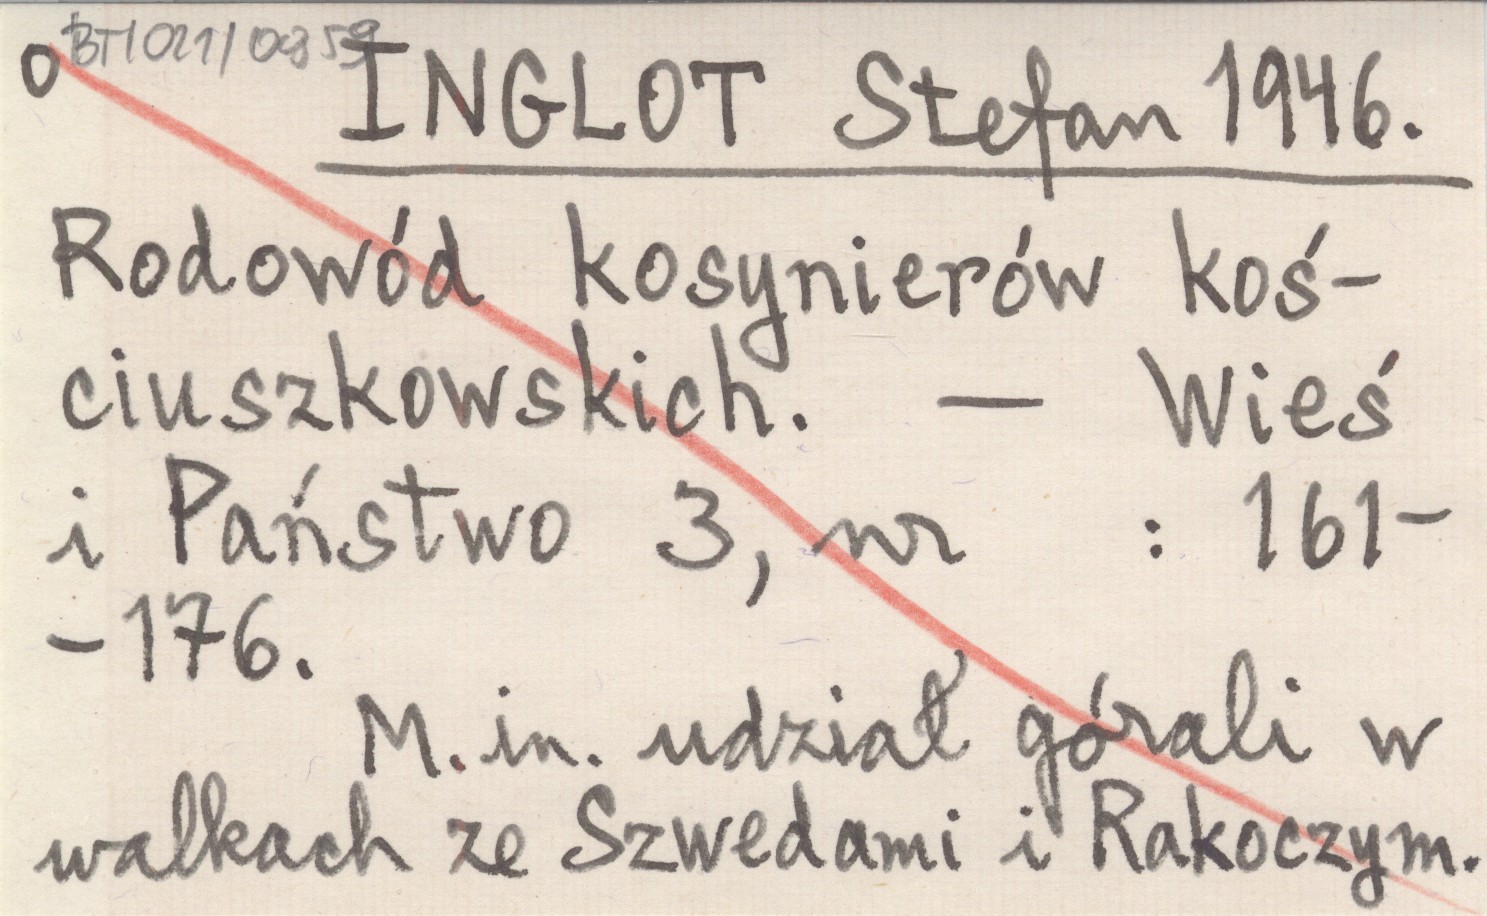 BT/021/0359
O INGLOT Stefan 1946.
Rodowód kosynierów koś-
ciuszkowskich. — Wieś
i Państwo 3, nr : 161-
-176.
M. in. udział górali w
walkach ze Szwedami i Rakoczym.